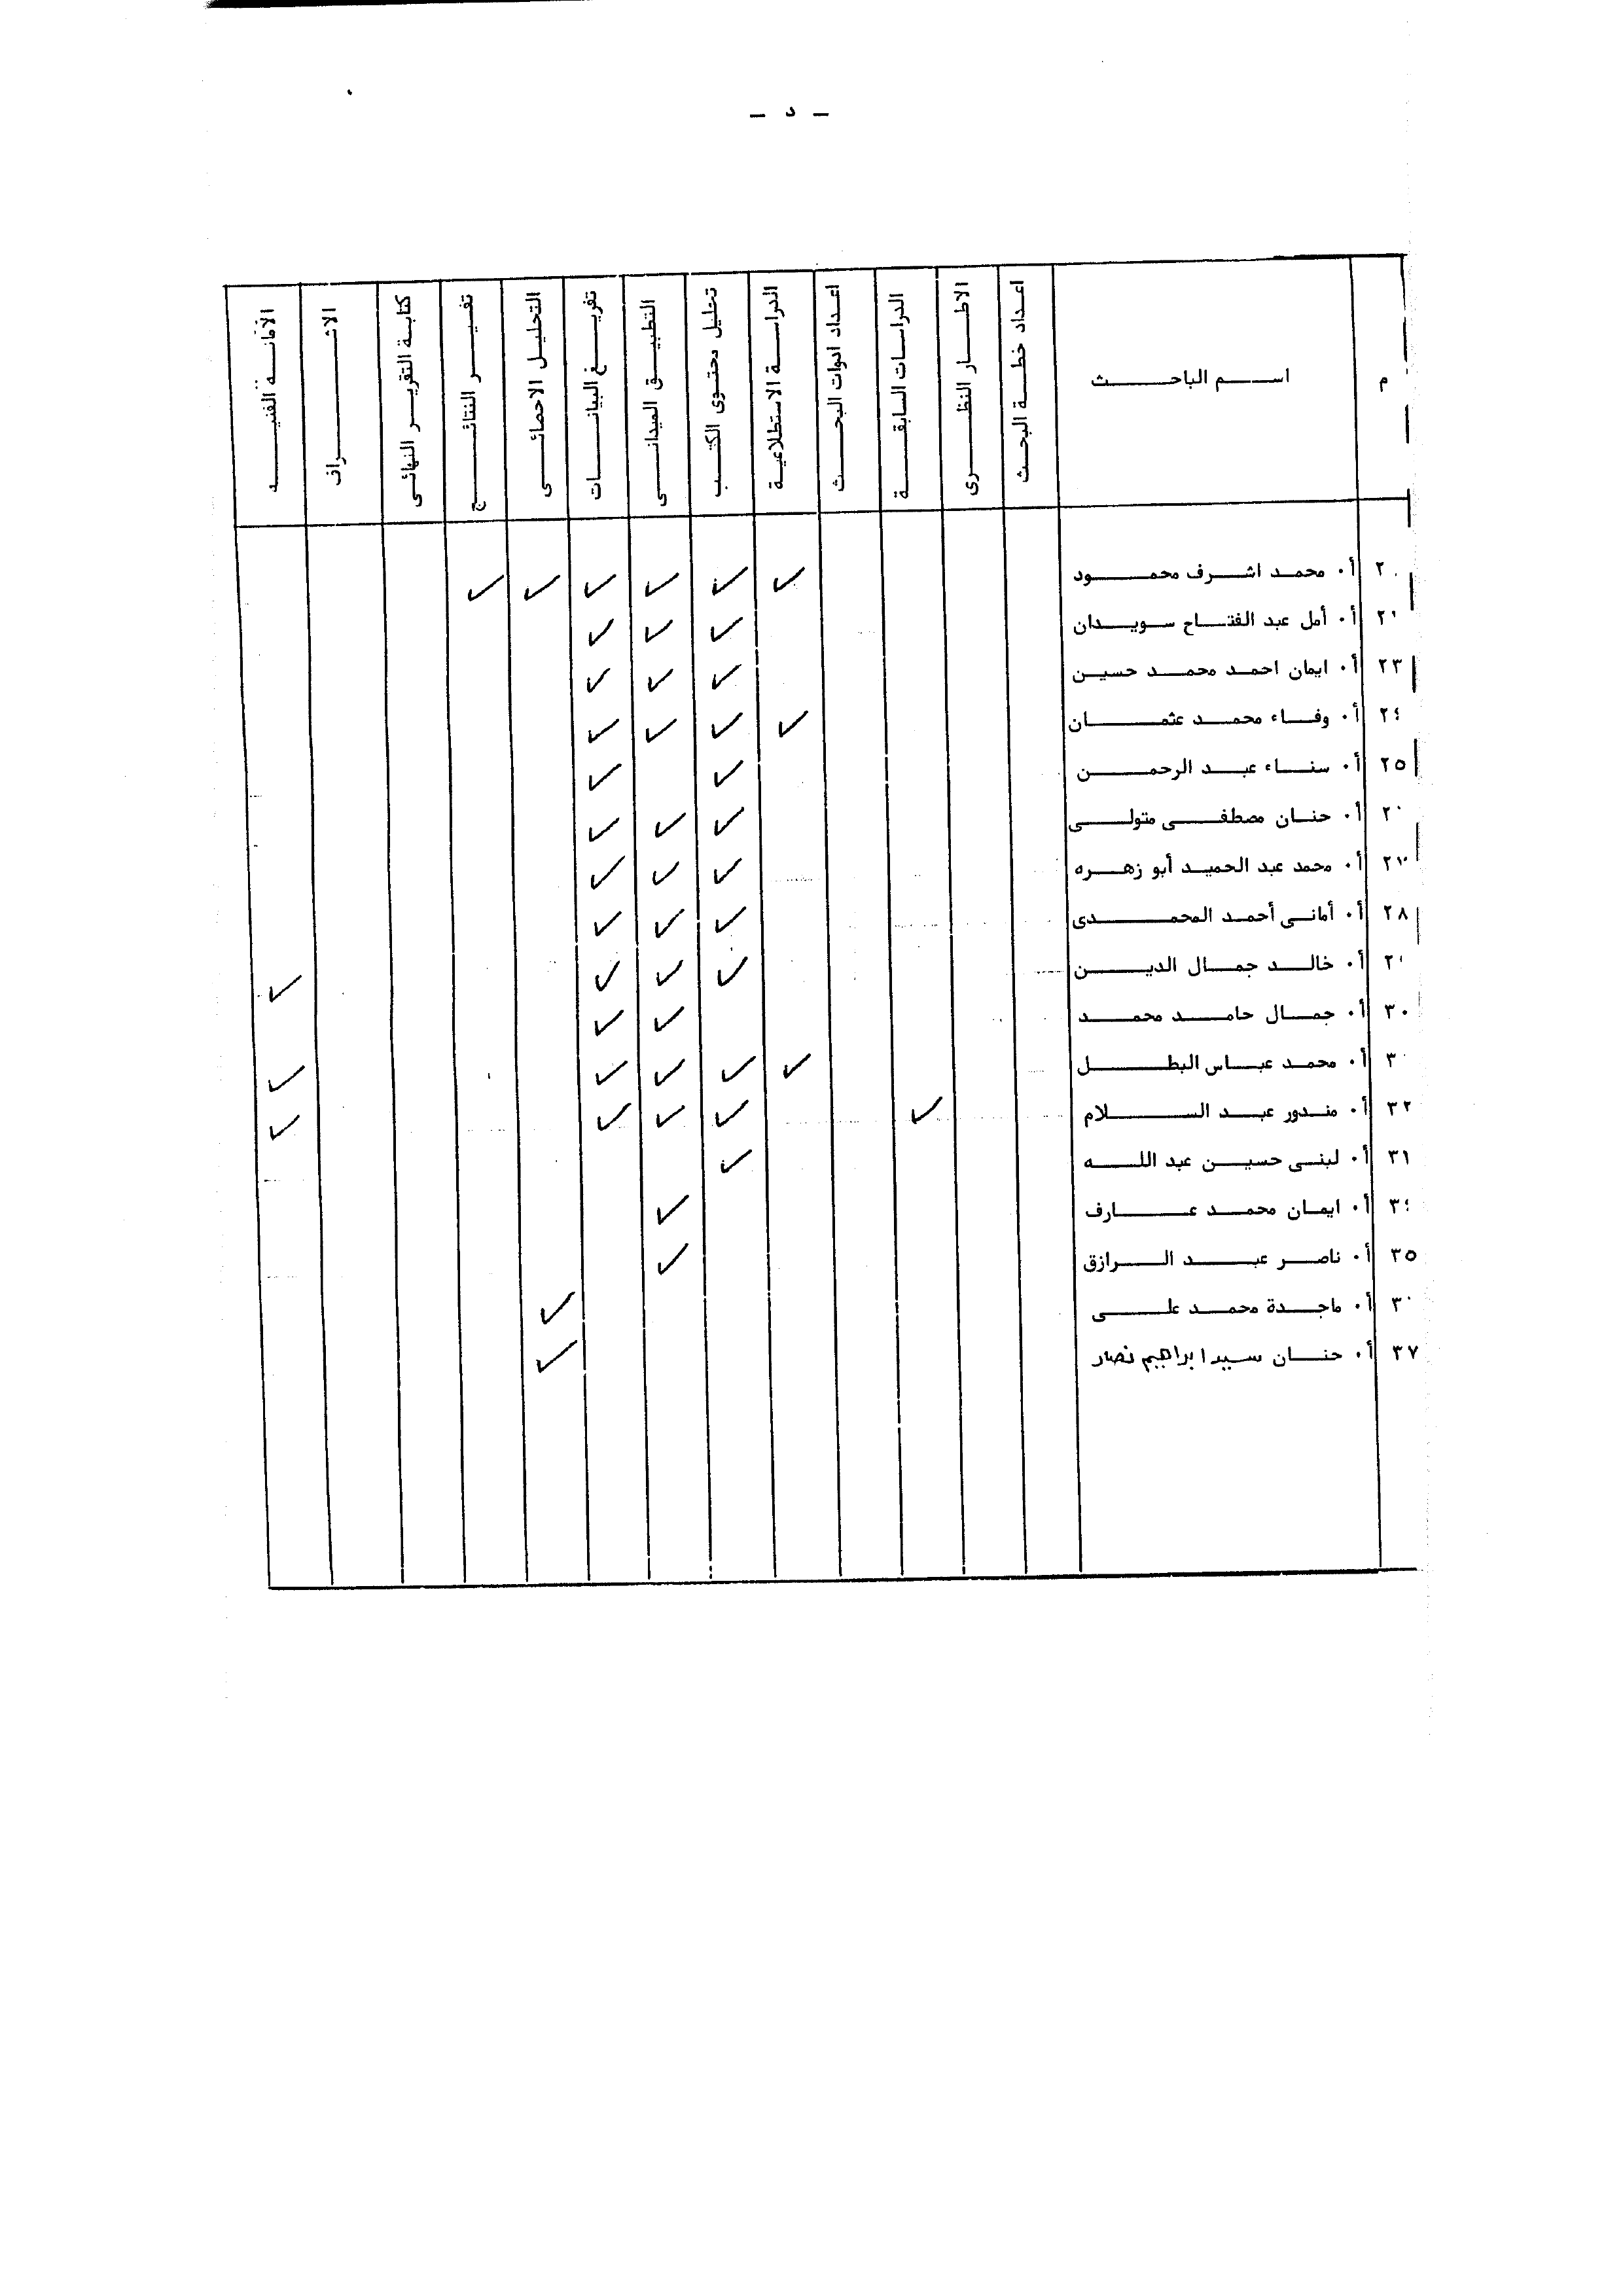 - د -
م | اسم الباحث | اعداد خطة البحث | الاطار النظرى | الدراسات السابقة | اعداد ادوات البحث | الدراسة الاستطلاعية | تحليل محتوى الكتب | التطبيق الميدانى | تفريغ البيانات | التحليل الاحصائى | تفسير النتائج | كتابة التقرير النهائى | الاشراف | الأمانة الفنية
أ. محمد اشرف محمود ✓ ✓ ✓ ✓ ✓ ✓
أ. أمل عبد الفتاح سويدان ✓ ✓ ✓
٢٣ أ. ايمان احمد محمد حسين ✓ ✓ ✓
٢٤ أ. وفاء محمد عثمان ✓ ✓ ✓ ✓
٢٥ أ. سناء عبد الرحمن ✓ ✓
أ. حنان مصطفى متولى ✓ ✓ ✓
٢٧ أ. محمد عبد الحميد أبو زهره ✓ ✓ ✓
٢٨ أ. أمانى أحمد المحمدى ✓ ✓ ✓
أ. خالد جمال الدين ✓ ✓ ✓ ✓
٣٠ أ. جمال حامد محمد ✓ ✓
أ. محمد عباس البطل ✓ ✓ ✓ ✓ ✓
٣٢ أ. مندور عبد السلام ✓ ✓ ✓ ✓ ✓
أ. لبنى حسين عبد الله ✓
٣٤ أ. ايمان محمد عارف ✓
٣٥ أ. ناصر عبد الرازق ✓
أ. ماجدة محمد على ✓
٣٧ أ. حنان سيد ابراهيم نصار ✓